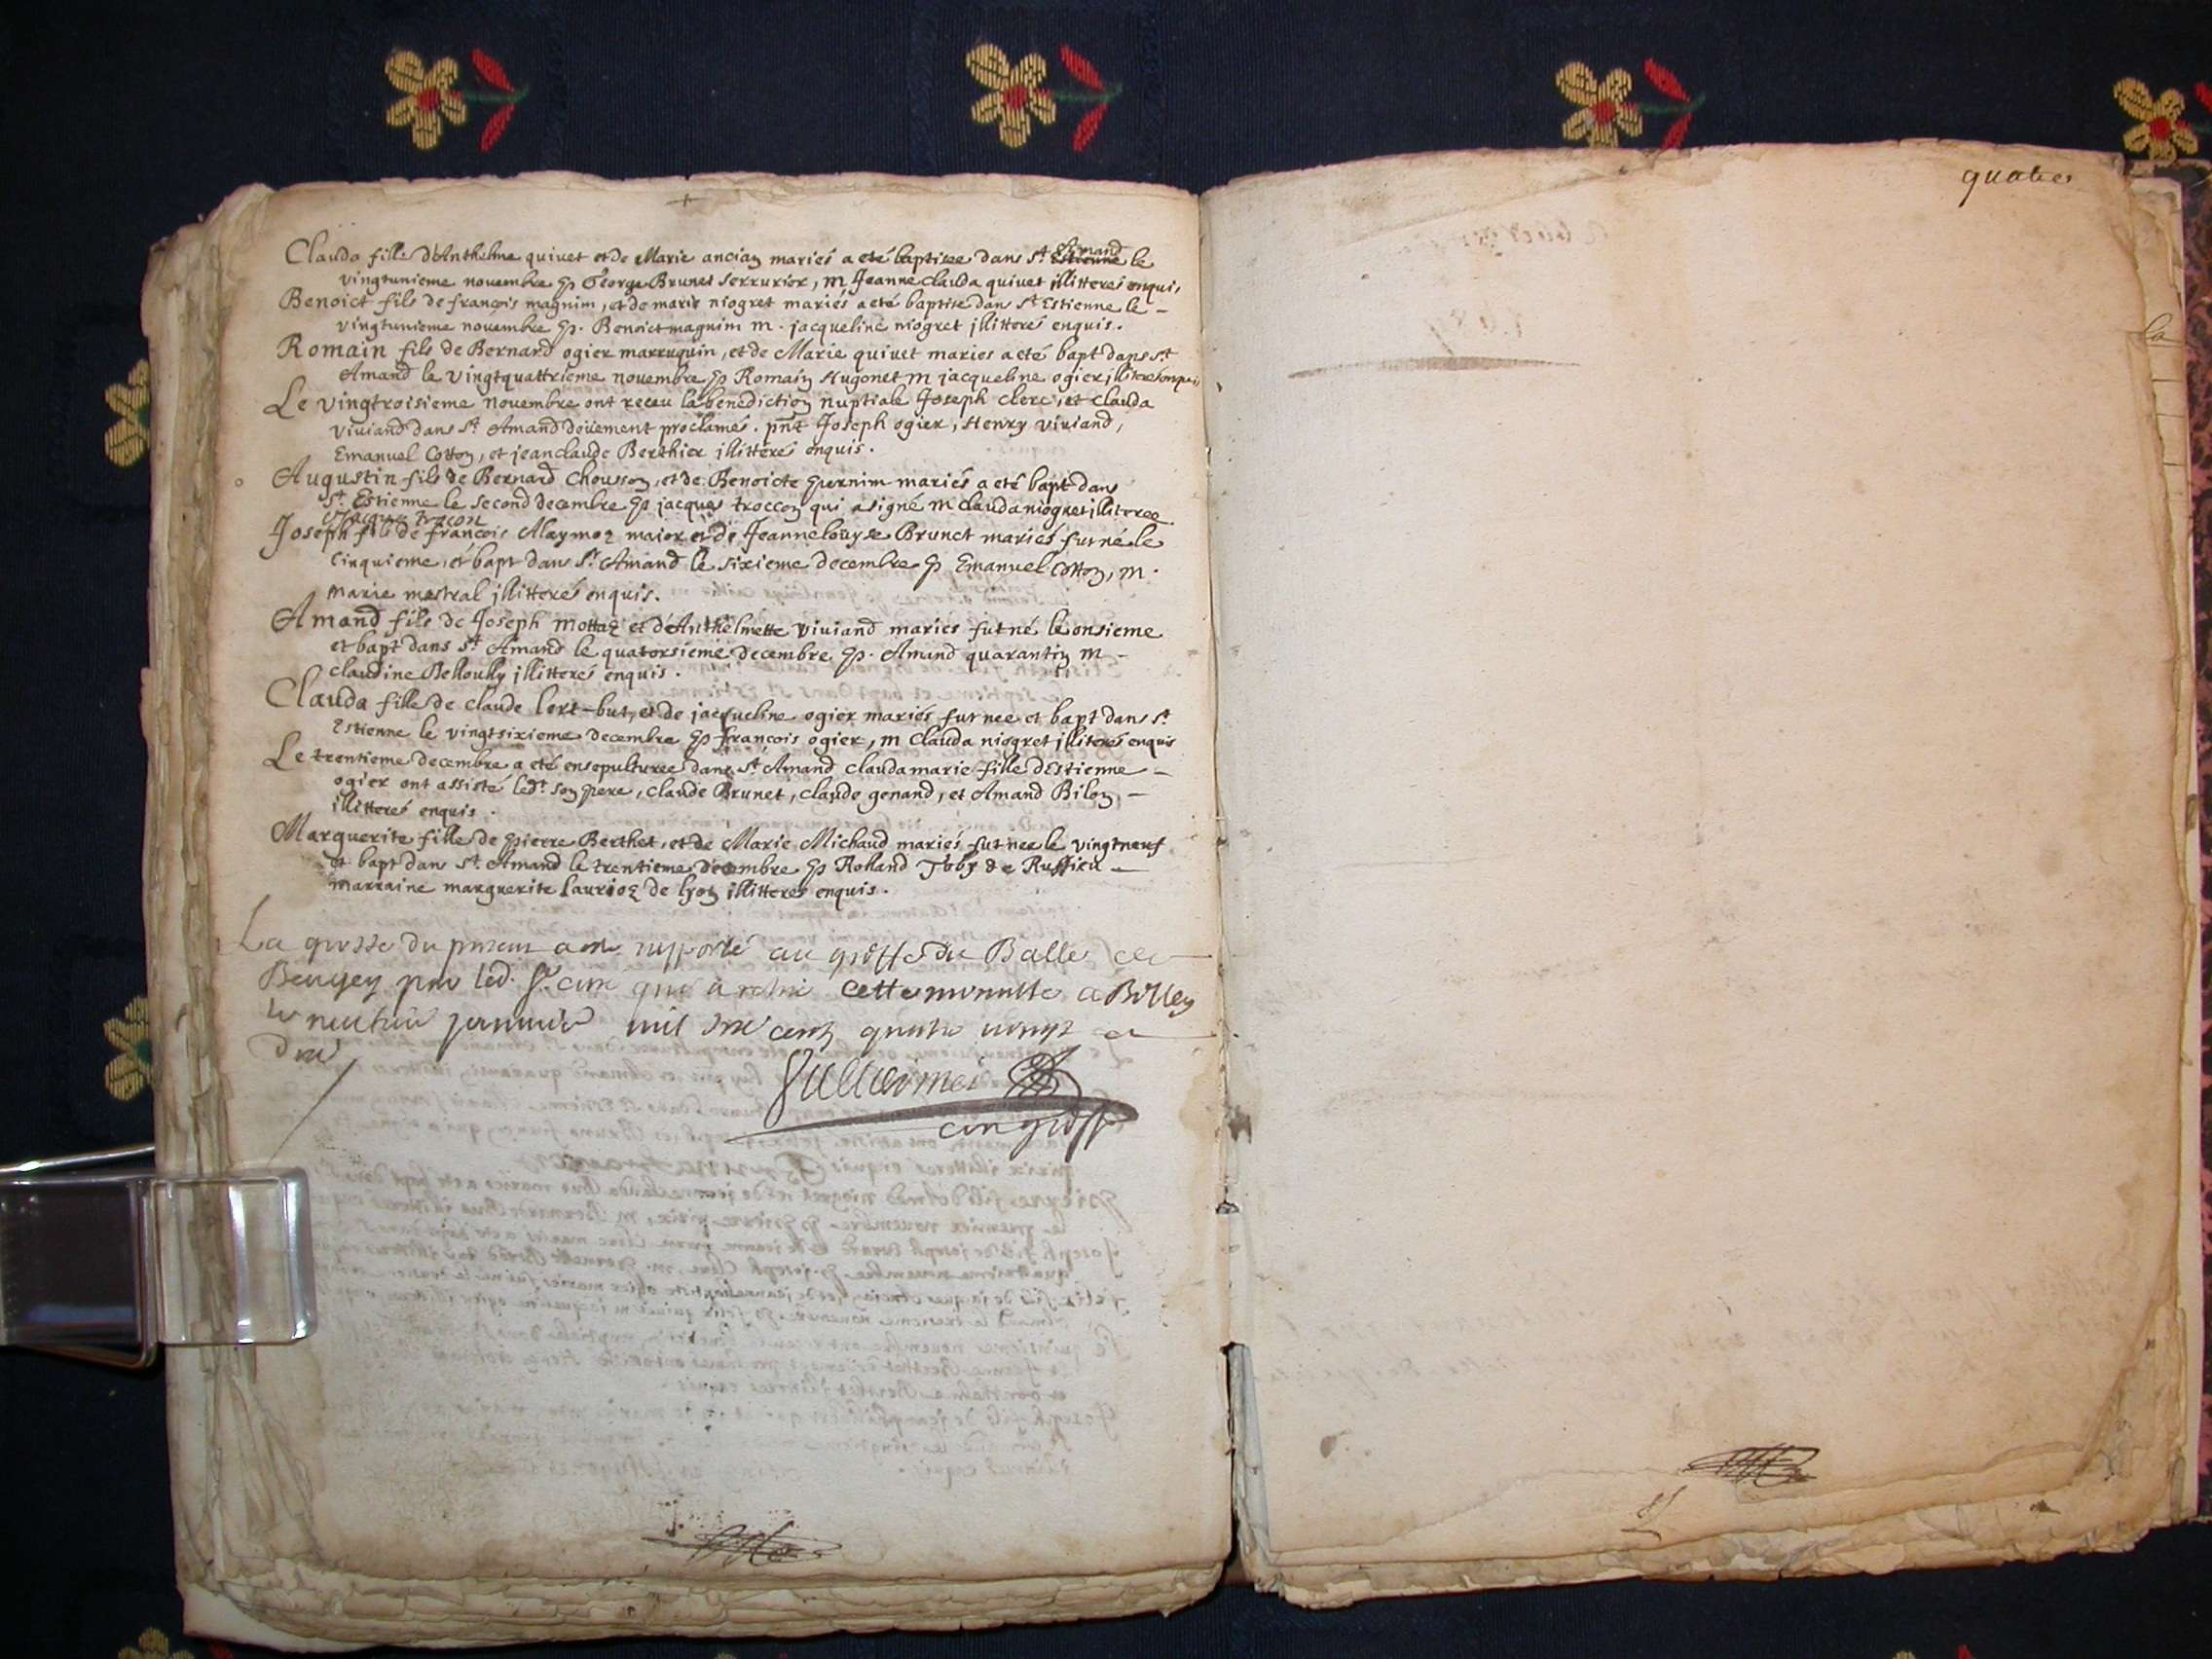 Clauda fille d'Anthelme quivet et de Marie ancian mariés a eté baptisee dans St Amand le
vingtunieme novembre p George Brunet serrurier, m Jeanne clauda quivet illitterés enquis
Benoict fils de françois magnim, et de marie niogret mariés a eté baptise dans St Estienne le –
vingtunieme novembre p. Benoict magnim m. jacqueline niogret illitterés enquis.
Romain fils de Bernard ogier marruquin, et de Marie quivet mariés a eté bapt dans St
Amand le vingtquattrieme novembre p Romain Hugonet m jacqueline ogier illiterés enquis
Le vingtroisieme novembre ont receu la benediction nuptiale Joseph clerc, et clauda
viviand dans St Amand deuement proclamés. pnt Joseph ogier, Henry viviand,
Emanuel Cotton, et jeanclaude Berthier illitterés enquis.
Augustin fils de Bernard Chousson, et de Benoicte pernim mariés a eté bapt dans
St Estienne le second decembre p jacques troccon qui a signé m clauda niogret illiteree.
Jacques trocon
Joseph fils de françois Maymoz maior et de Jeannelouyse Brunet mariés fut né le
cinquieme, et bapt dans St Amand le sixieme decembre p Emanuel Cotton, m.
marie mestral illitterés enquis.
Amand fils de Joseph mottaz et d'Anthelmette viviand mariés fut né le onsieme
et bapt dans St Amand le quatorsieme decembre p. Amand quarantin m –
claudine illitterés enquis.
Clauda fille de claude lert-but, et de jacqueline ogier mariés fut nee et bapt dans St
Estienne le vingtsixieme decembre p françois ogier, m clauda niogret illiterés enquis
Le trentieme decembre a eté ensepulturee dans St Amand claudamarie fille d'Estienne –
ogier ont assisté ledt son pere, claude Brunet, claude genand, et Amand Bilon, –
illitterés enquis.
Marguerite fille de pierre Berthet, et de Marie Michaud mariés fut nee le vingtneuf
et bapt dans St Amand le trentieme decembre p Rolland de Ruffieu –
marraine marguerite laurioz de lyon illitterés enquis.
La grosse du pnt a esté rapporté au greffe du
Beugey par led. Sr curé qui a retiré cette minutte a Belley
le janvier mil six cent quatre vingt et
dix
Gulliermet